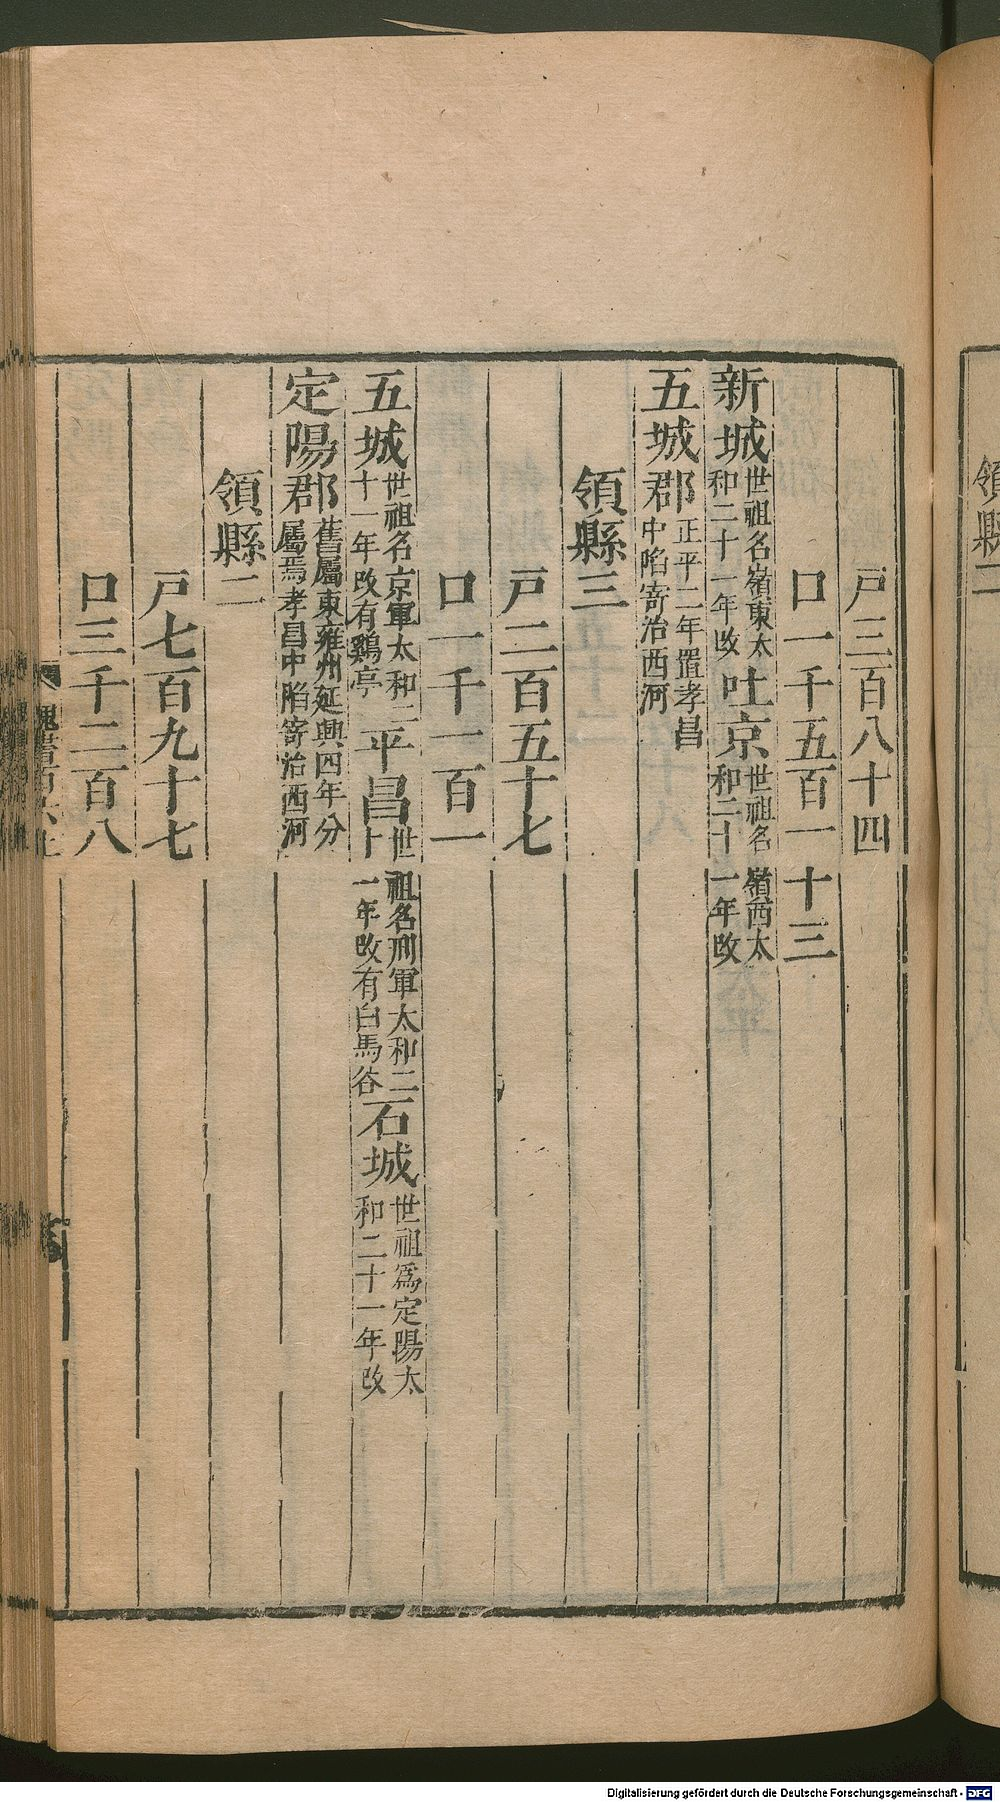 戶三百八十四
口一千五百一十三
新城世祖名嶺東太和二十一年改吐京世祖名嶺西太和二十一年改
五城郡正平二年置孝昌中陷寄治西河
領縣三
戶二百五十七
口一千一百一
五城世祖名京軍太和二十一年改有雞亭平昌世祖名刑軍太和二十一年改有白馬谷石城世祖爲定陽太和二十一年改
定陽郡舊屬東雍州延興四年分屬焉孝昌中陷寄治西河
領縣二
戶七百九十七
口三千二百八
魏書百六上
領縣二
Digitalisierung gefördert durch die Deutsche Forschungsgemeinschaft - DFG